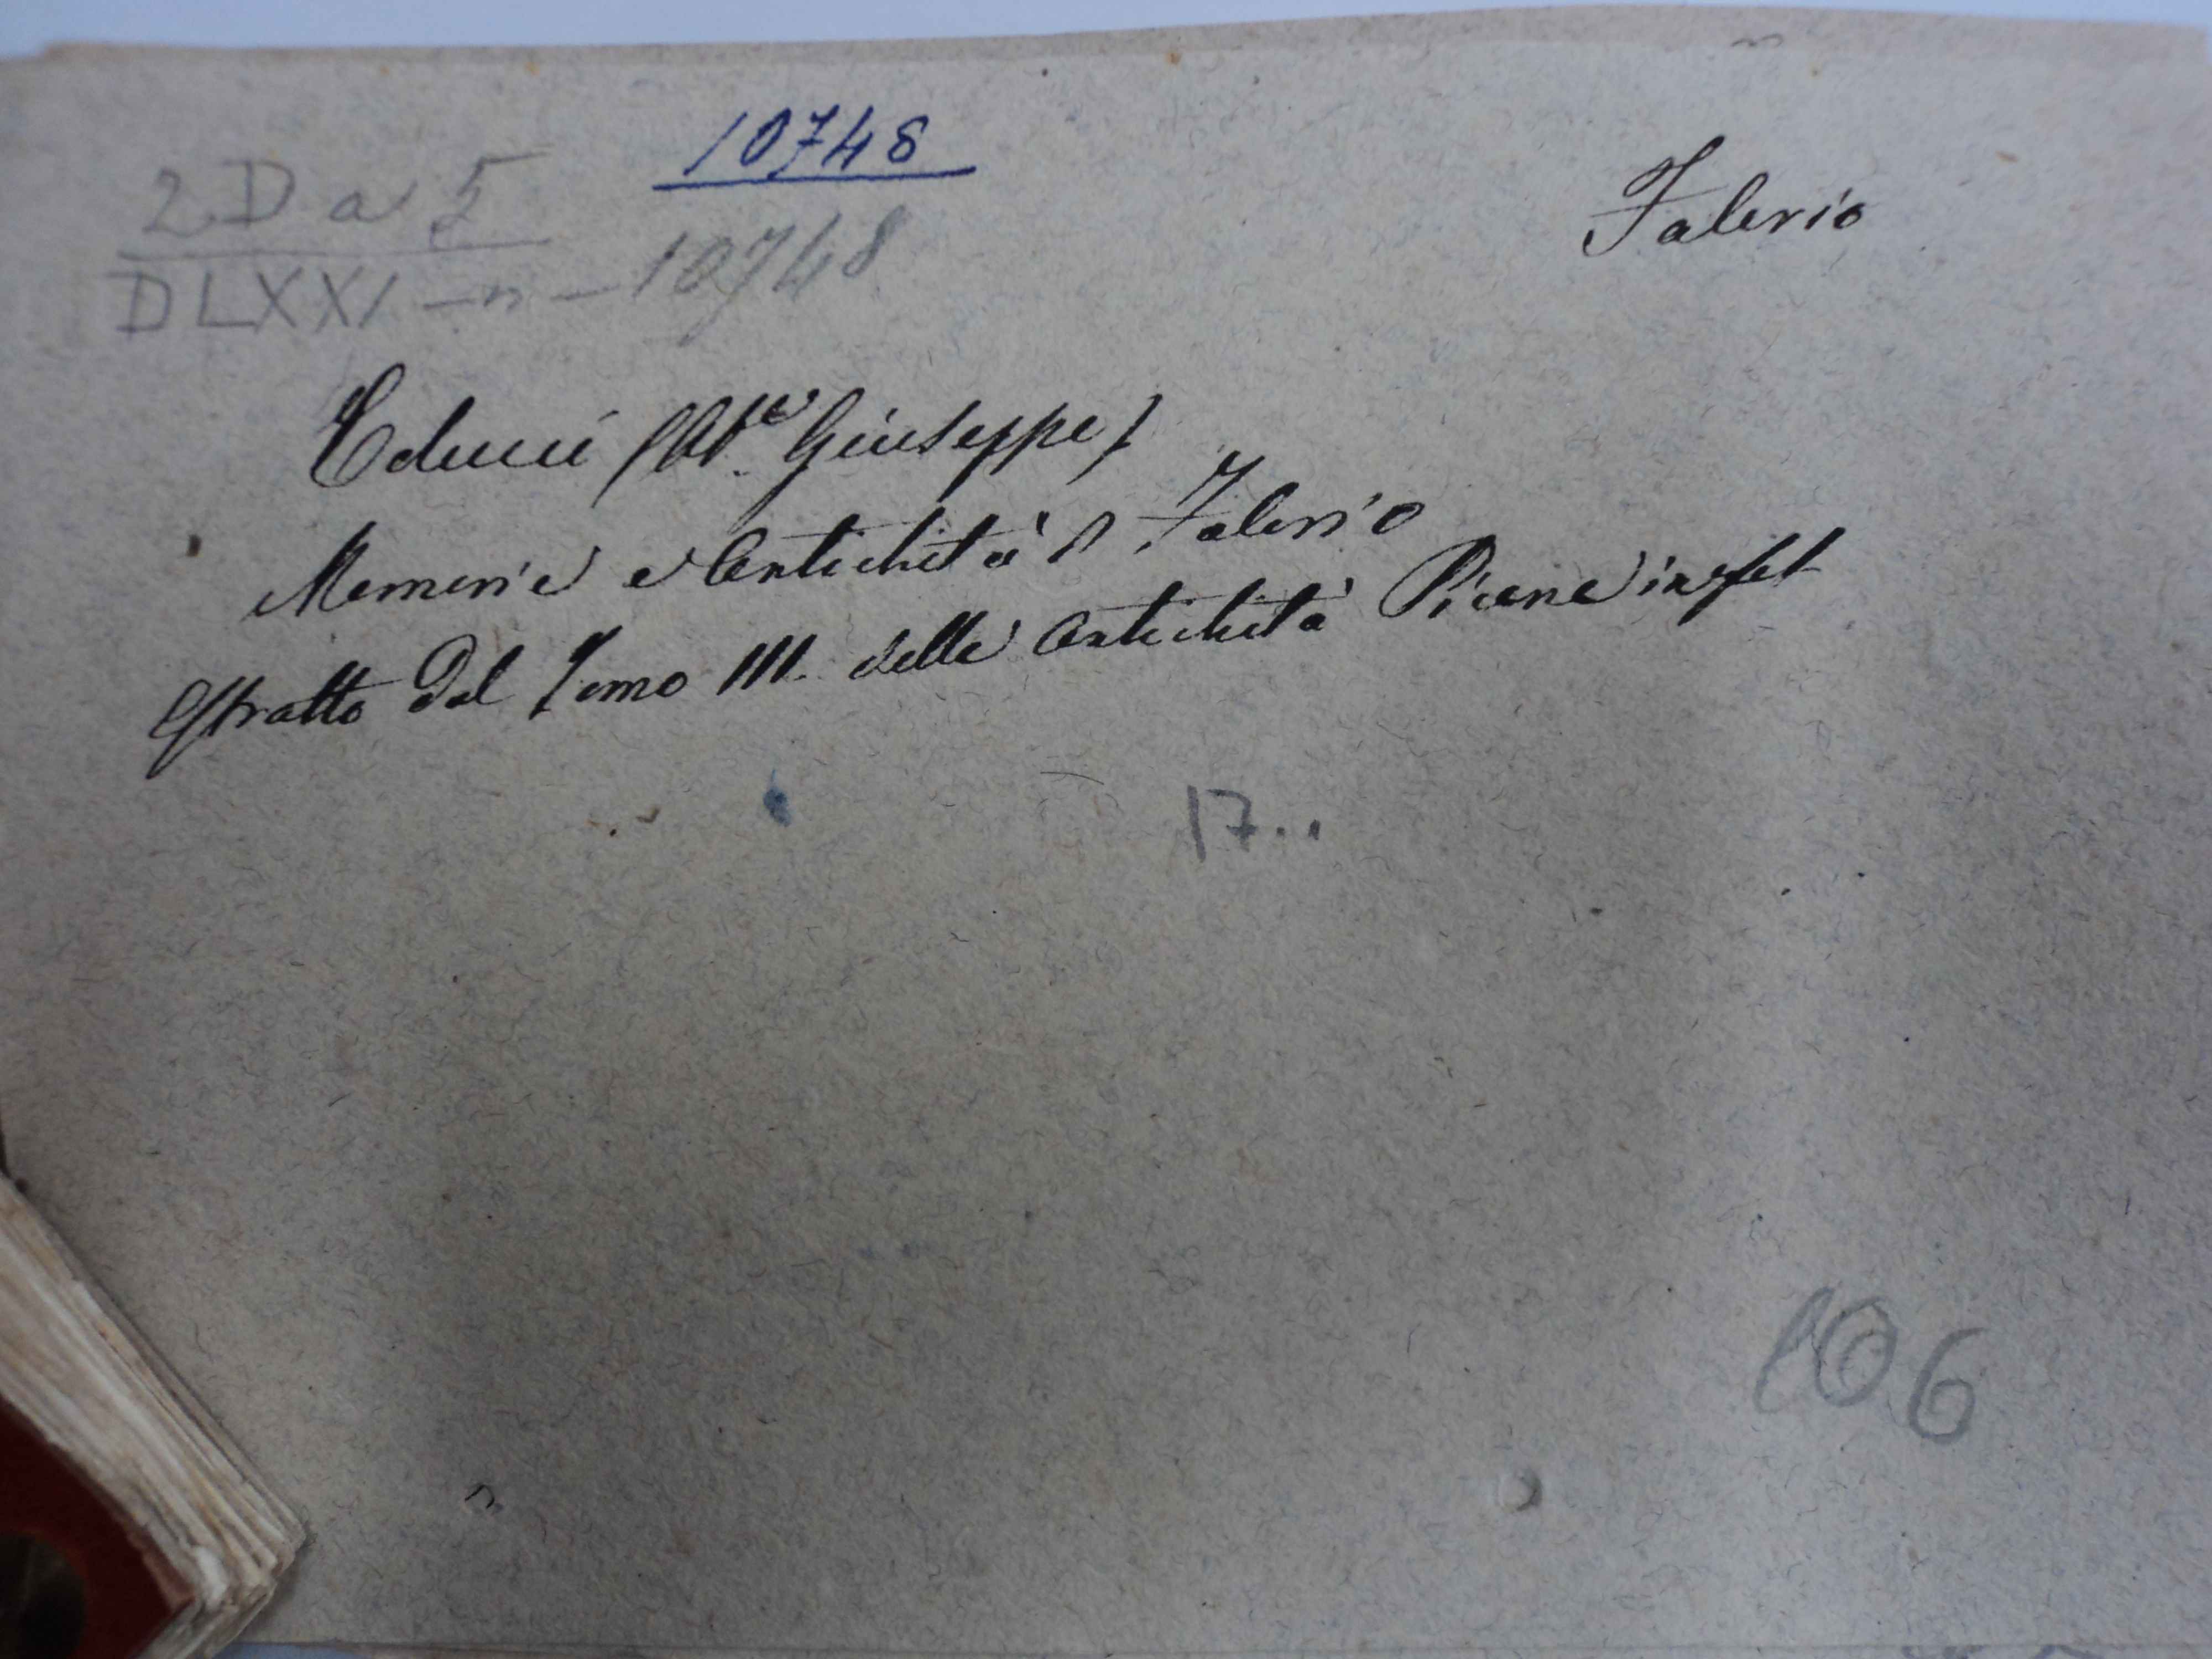 10748
2D a 5
DLXXI - n - 10748
Falerio
Colucci (Ab.e Giuseppe)
Memorie e Antichità d Falerio
Estratto dal Tomo III. delle Antichità Picene in fol
17..
106